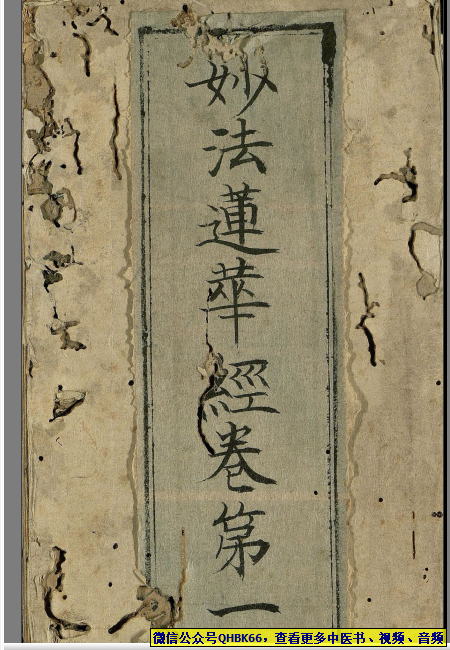 妙法蓮華經卷第一
微信公众号QHBK66，查看更多中医书、视频、音频